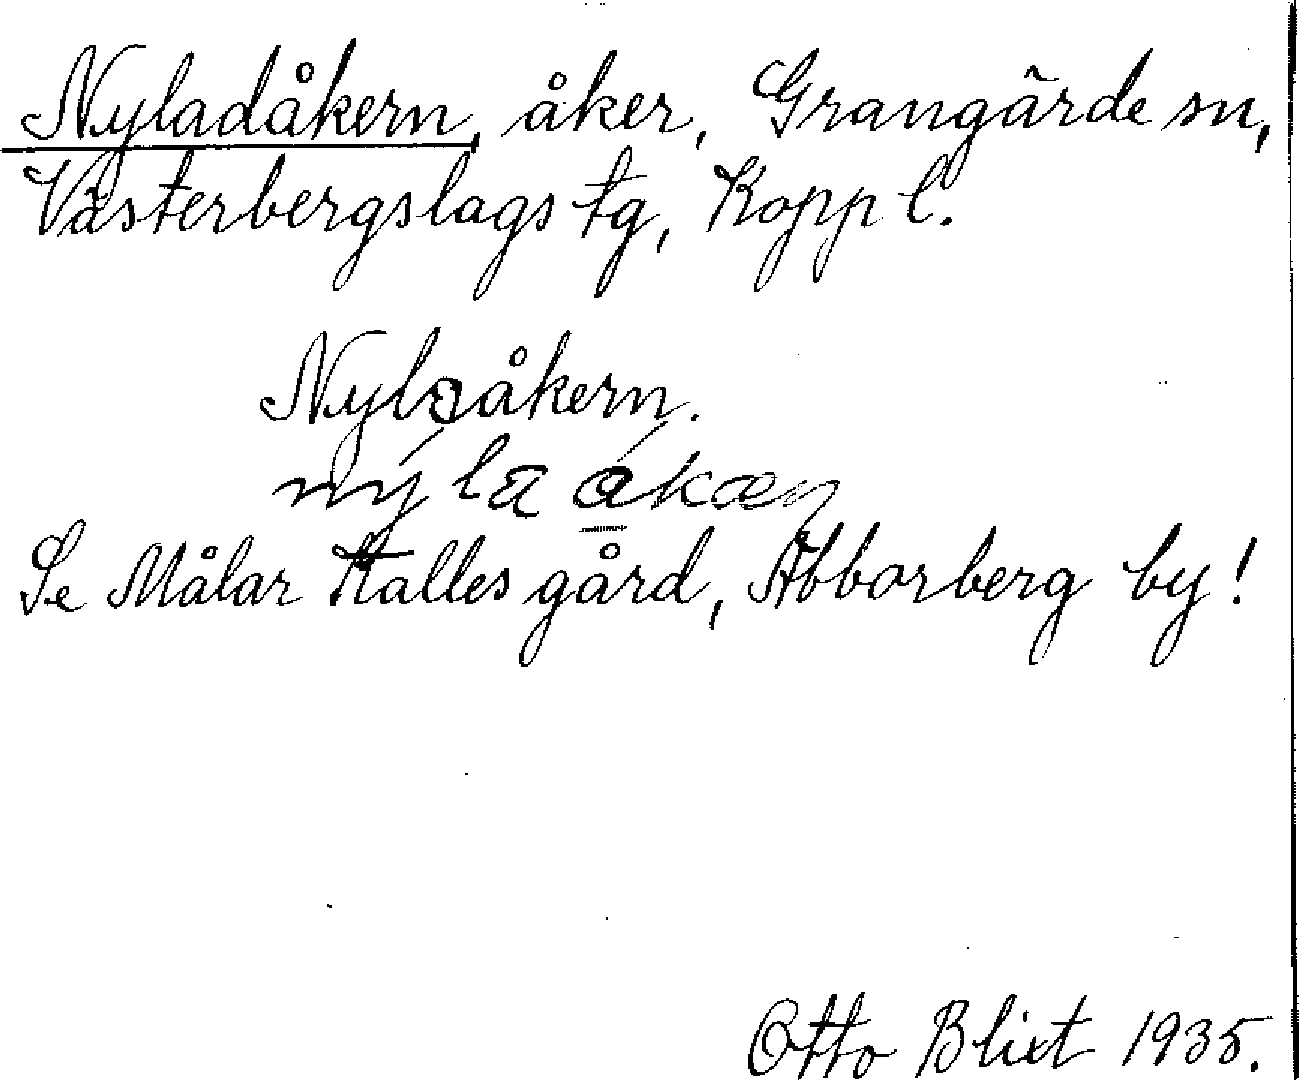 Nyladåkern, åker, Grangärde sn,
Västerbergslags tg, Kopp l.
Nylaåkern.
nýla ákæn
Se Målar Kalles gård, Abborberg by!
Otto Blixt 1935.